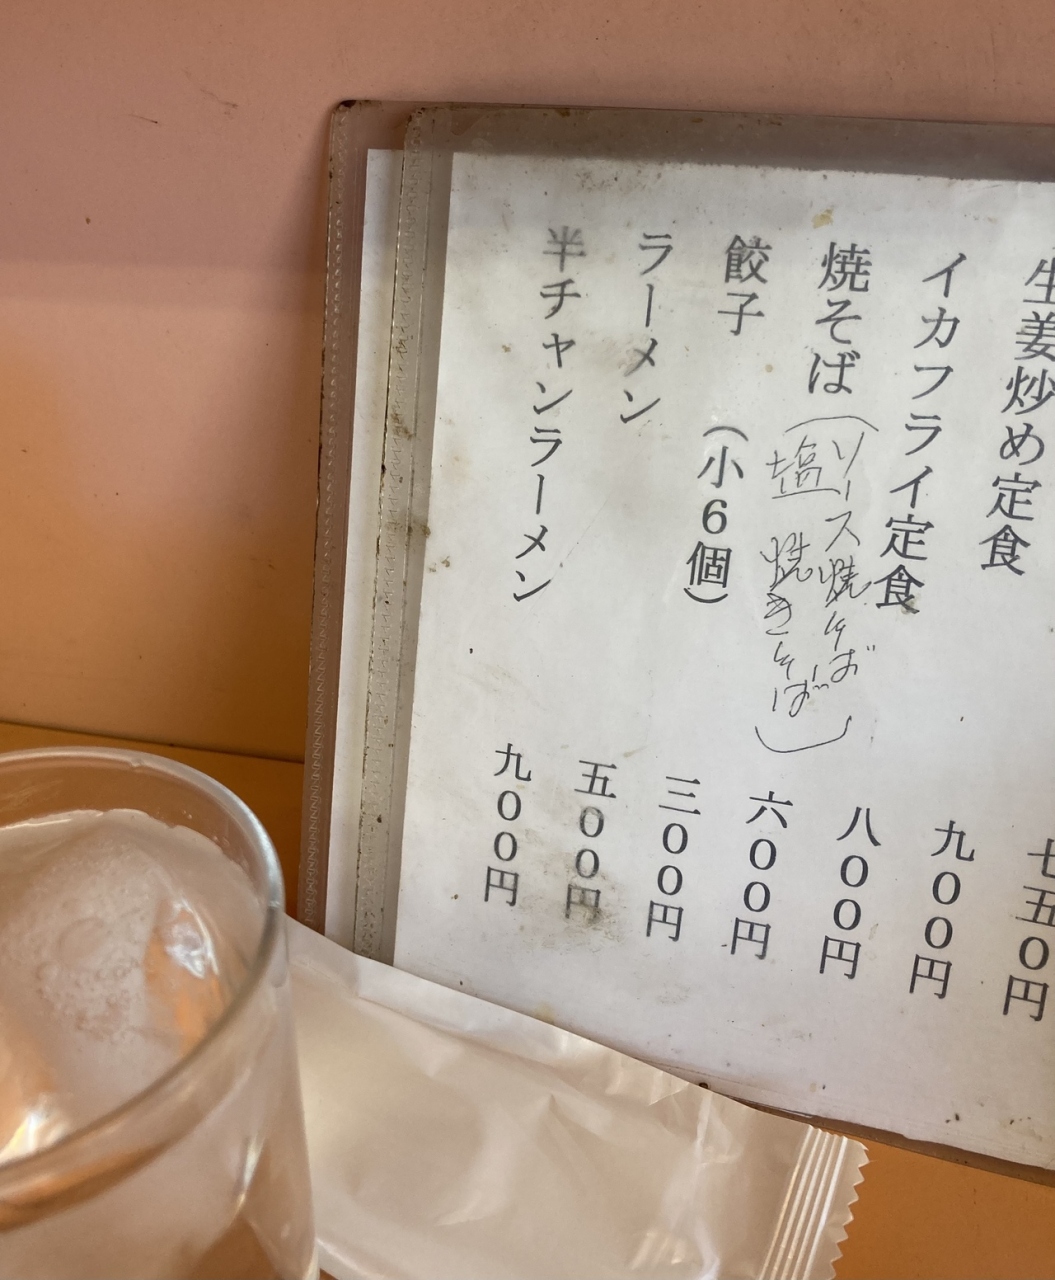 七五〇円
生姜炒め定食 九〇〇円
イカフライ定食 八〇〇円
焼そば 六〇〇円
(ソース焼そば
塩 焼きそば)
餃子 (小6個) 三〇〇円
ラーメン 五〇〇円
半チャンラーメン 九〇〇円